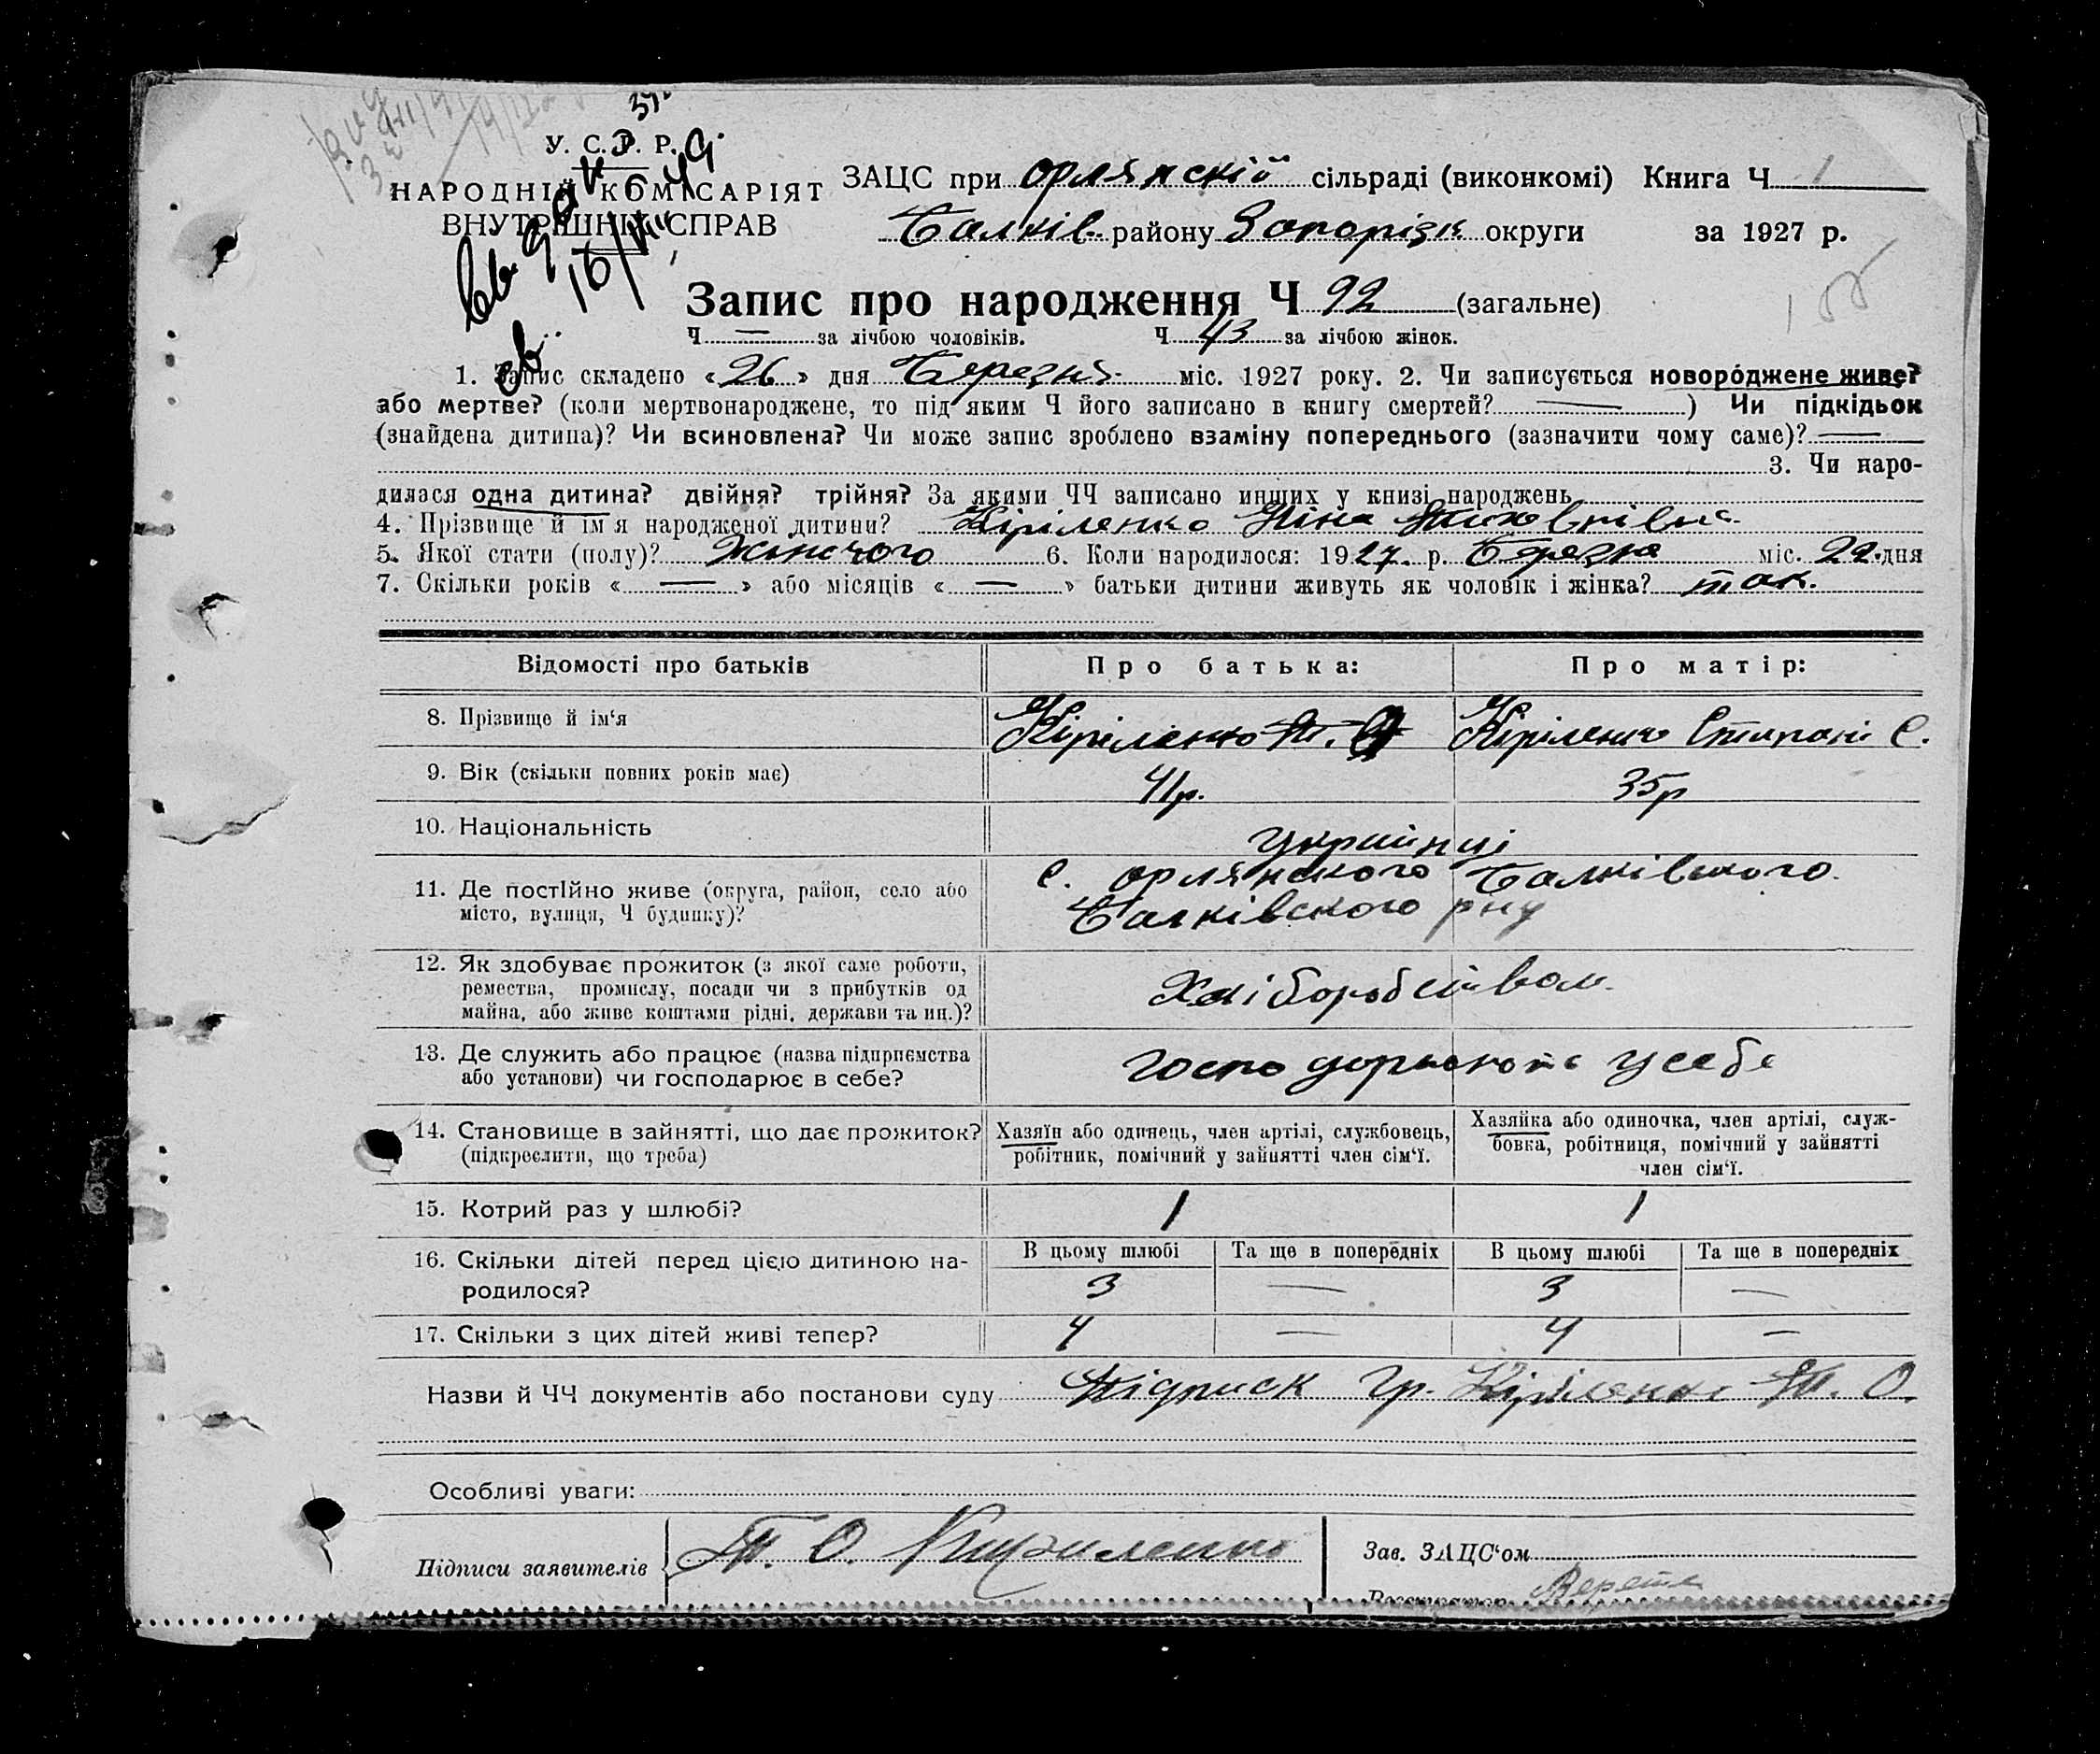 У. С. Р. Р.
НАРОДНІЙ КОМІСАРІЯТ
ВНУТРІШНІХ СПРАВ
ЗАЦС при Орлянскій сільраді (виконкомі) Книга Ч 1
Балків. району Запорізк округи за 1927 р.
Запис про народження Ч 92 (загальне)
Ч — за лічбою чоловіків. Ч 43 за лічбою жінок.
1. Запис складено «26» дня Березня міс. 1927 року. 2. Чи записується новороджене живе?
або мертве? (коли мертвонароджене, то під яким Ч його записано в книгу смертей? —) Чи підкідьок
(знайдена дитина)? Чи всиновлена? Чи може запис зроблено взаміну попереднього (зазначити чому саме)? —
3. Чи наро-
дилася одна дитина? двійня? трійня? За якими ЧЧ записано инших у книзі народжень
4. Прізвище й ім'я народженої дитини? Кіріленко Ніна
5. Якої стати (полу)? Жіночого 6. Коли народилося: 1927. р. Березня міс. 22 дня
7. Скільки років «—» або місяців «—» батьки дитини живуть як чоловік і жінка? так.
Відомості про батьків Про батька: Про матір:
8. Прізвище й ім'я Кіріленко Т. О Кіріленко С.
9. Вік (скільки повних років має) 41р. 35р
10. Національність Українці
11. Де постійно живе (округа, район, село або
місто, вулиця, Ч будинку)?
с. Орлянского Балківського.
Балківского р-ну
12. Як здобуває прожиток (з якої саме роботи,
ремества, промислу, посади чи з прибутків од
майна, або живе коштами рідні, держави та ин.)?
Хліборобством.
13. Де служить або працює (назва підприємства
або установи) чи господарює в себе?
господорюють у себе
14. Становище в зайнятті, що дає прожиток?
(підкреслити, що треба)
Хазяїн або одинець, член артілі, службовець,
робітник, помічний у зайнятті член сім'ї.
Хазяйка або одиночка, член артілі, служ-
бовка, робітниця, помічний у зайнятті
член сім'ї.
15. Котрий раз у шлюбі? 1 1
16. Скільки дітей перед цією дитиною на-
родилося?
В цьому шлюбі Та ще в попередніх В цьому шлюбі Та ще в попередніх
3 — 3 —
17. Скільки з цих дітей живі тепер? 4 — 4 —
Назви й ЧЧ документів або постанови суду Підписк гр. Кіріленко Т. О.
Особливі уваги:
Підписи заявителів Т. О. Кириленко
Зав. ЗАЦС'ом